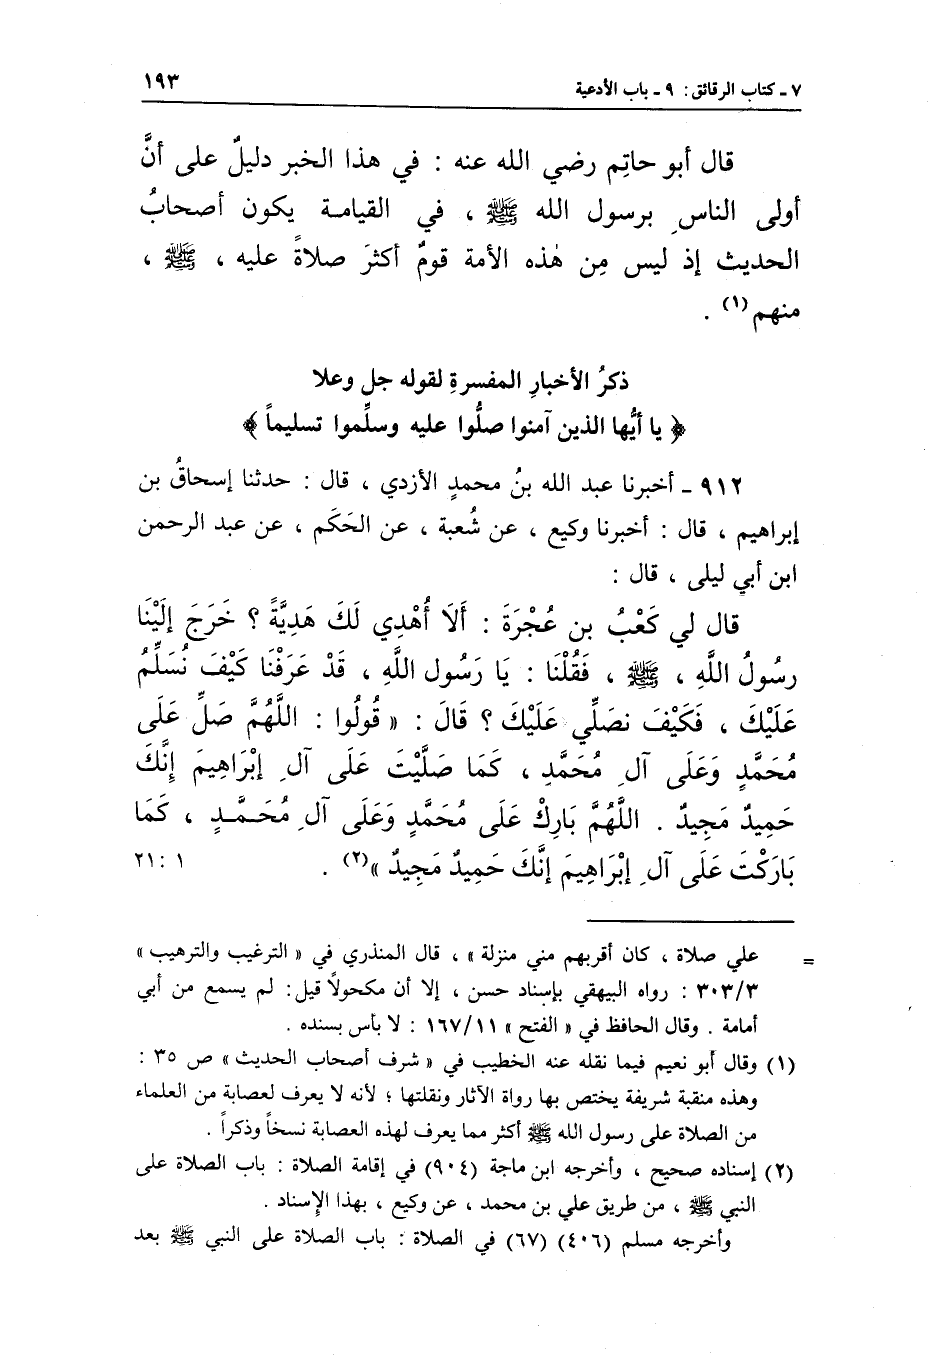 ٧ - كتاب الرقائق: ٩ - باب الأدعية ١٩٣
قال أبو حاتِم رضي الله عنه : في هذا الخبر دليلٌ على أنَّ
أولى الناسِ برسول الله ﷺ ، في القيامة يكون أصحابُ
الحديث إذ ليس مِن هٰذه الأمة قومٌ أكثرَ صلاةً عليه ، ﷺ ،
منهم(١) .
ذكرُ الأخبارِ المفسرةِ لقوله جل وعلا
﴿ يا أيُّها الذين آمنوا صلُّوا عليه وسلِّموا تسليماً ﴾
٩١٢ - أخبرنا عبد الله بنُ محمدٍ الأزدي ، قال : حدثنا إسحاقُ بن
إبراهيم ، قال : أخبرنا وكيع ، عن شُعبة ، عن الحَكَم ، عن عبد الرحمن
ابن أبي ليلى ، قال :
قال لي كَعْبُ بن عُجْرَةَ : أَلَا أُهْدِي لَكَ هَدِيَّةً ؟ خَرَجَ إِلَيْنَا
رسُولُ اللَّهِ ، ﷺ ، فَقُلْنَا : يَا رَسُول اللَّهِ ، قَدْ عَرَفْنَا كَيْفَ نُسَلِّمُ
عَلَيْكَ ، فَكَيْفَ نصَلِّي عَلَيْكَ ؟ قَالَ : « قُولُوا : اللَّهُمَّ صَلِّ عَلَى
مُحَمَّدٍ وَعَلَى آلِ مُحَمَّدٍ ، كَمَا صَلَّيْتَ عَلَى آلِ إِبْرَاهِيمَ إِنَّكَ
حَمِيدٌ مَجِيدٌ . اللَّهُمَّ بَارِكْ عَلَى مُحَمَّدٍ وَعَلَى آلِ مُحَمَّدٍ ، كَمَا
بَارَكْتَ عَلَى آلِ إِبْرَاهِيمَ إِنَّكَ حَمِيدٌ مَجِيدٌ »(٢) . ١ : ٢١
= علي صلاة ، كان أقربهم مني منزلة » ، قال المنذري في « الترغيب والترهيب »
٣٠٣/٣ : رواه البيهقي بإسناد حسن ، إلا أن مكحولاً قيل: لم يسمع من أبي
أمامة . وقال الحافظ في « الفتح » ١٦٧/١١ : لا بأس بسنده .
(١) وقال أبو نعيم فيما نقله عنه الخطيب في « شرف أصحاب الحديث » ص ٣٥ :
وهذه منقبة شريفة يختص بها رواة الآثار ونقلتها ؛ لأنه لا يعرف لعصابة من العلماء
من الصلاة على رسول الله ﷺ أكثر مما يعرف لهذه العصابة نسخاً وذكراً .
(٢) إسناده صحيح ، وأخرجه ابن ماجة (٩٠٤) في إقامة الصلاة : باب الصلاة على
النبي ﷺ ، من طريق علي بن محمد ، عن وكيع ، بهذا الإسناد .
وأخرجه مسلم (٤٠٦) (٦٧) في الصلاة : باب الصلاة على النبي ﷺ بعد